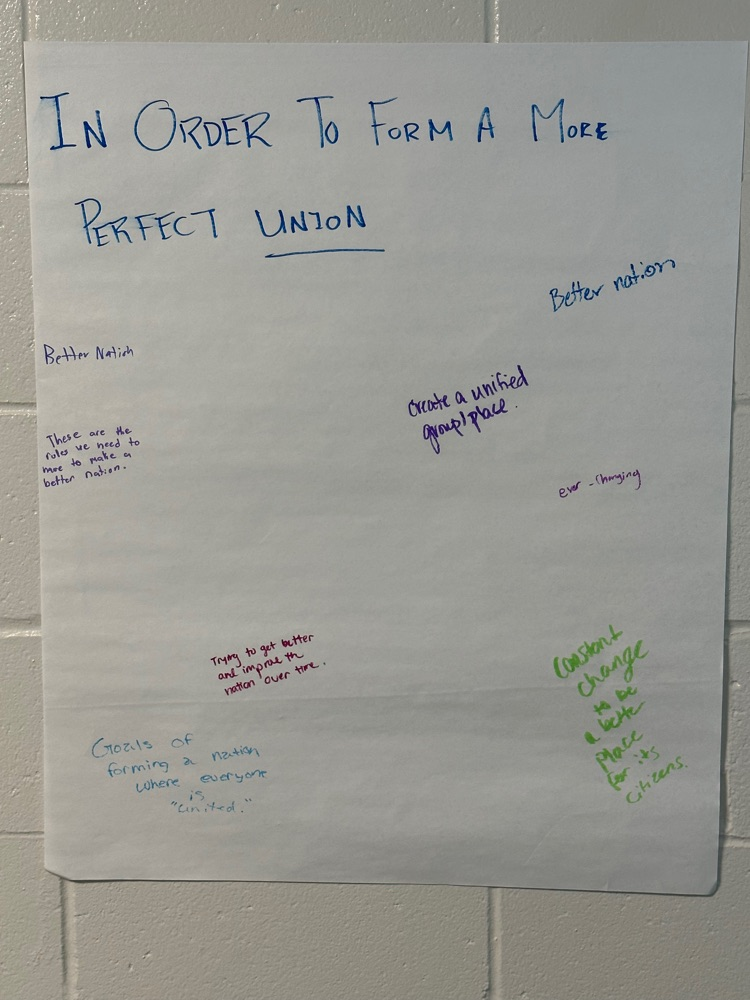 IN ORDER TO FORM A MORE
PERFECT UNION
Better nation
Better Nation
Create a unified
group/place.
These are the
rules we need to
more to make a
better nation.
ever-changing
Trying to get better
and improve th
nation over time.
Constant
change
to be
a better
place
for its
citizens.
Goals of
forming a nation
where everyone
is
"united."